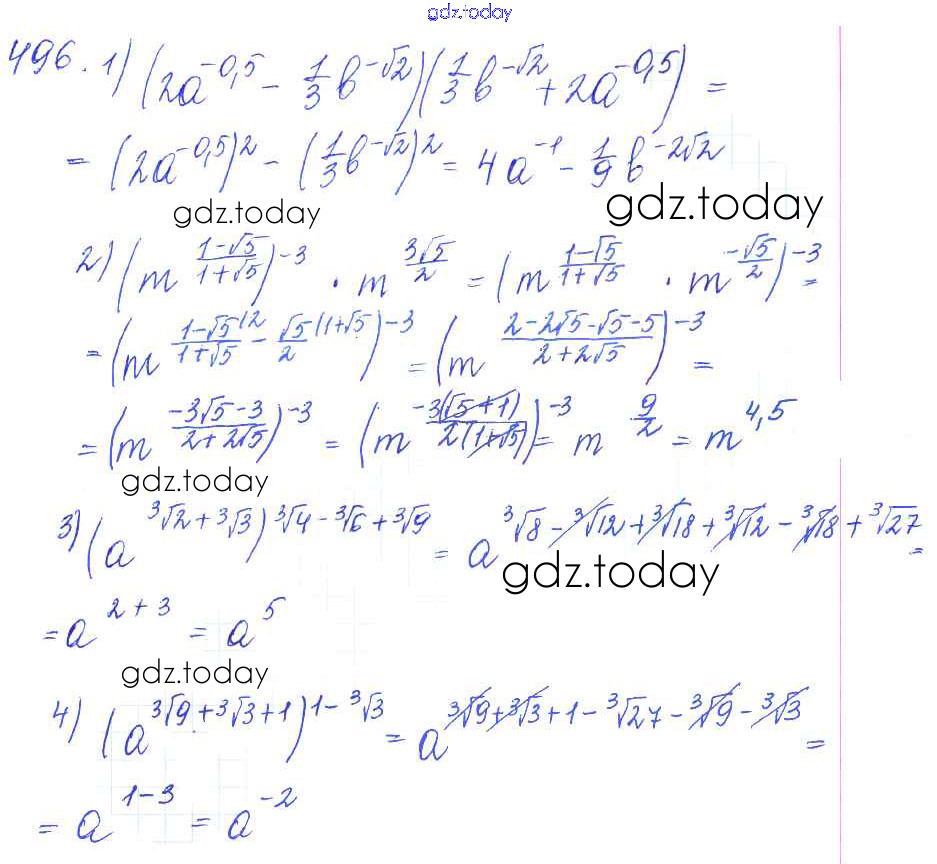 gdz.today
496. 1) (2a^{-0,5} - \frac{1}{3}b^{-\sqrt{2}})(\frac{1}{3}b^{-\sqrt{2}} + 2a^{-0,5}) =
= (2a^{-0,5})^2 - (\frac{1}{3}b^{-\sqrt{2}})^2 = 4a^{-1} - \frac{1}{9}b^{-2\sqrt{2}}
gdz.today gdz.today
2) (m^{\frac{1-\sqrt{5}}{1+\sqrt{5}}})^{-3} · m^{\frac{3\sqrt{5}}{2}} = (m^{\frac{1-\sqrt{5}}{1+\sqrt{5}}} · m^{-\frac{\sqrt{5}}{2}})^{-3} =
= (m^{\frac{1-\sqrt{5}}{1+\sqrt{5}}^{(2} - \frac{\sqrt{5}}{2}^{(1+\sqrt{5})}})^{-3} = (m^{\frac{2-2\sqrt{5}-\sqrt{5}-5}{2+2\sqrt{5}}})^{-3} =
= (m^{\frac{-3\sqrt{5}-3}{2+2\sqrt{5}}})^{-3} = (m^{\frac{-3(\sqrt{5}+1)}{2(1+\sqrt{5})}})^{-3} = m^{\frac{9}{2}} = m^{4,5}
gdz.today
3) (a^{\sqrt[3]{2}+\sqrt[3]{3}})^{\sqrt[3]{4}-\sqrt[3]{6}+\sqrt[3]{9}} = a^{\sqrt[3]{8}-\sqrt[3]{12}+\sqrt[3]{18}+\sqrt[3]{12}-\sqrt[3]{18}+\sqrt[3]{27}} =
gdz.today
= a^{2+3} = a^5
gdz.today
4) (a^{\sqrt[3]{9}+\sqrt[3]{3}+1})^{1-\sqrt[3]{3}} = a^{\sqrt[3]{9}+\sqrt[3]{3}+1-\sqrt[3]{27}-\sqrt[3]{9}-\sqrt[3]{3}} =
= a^{1-3} = a^{-2}